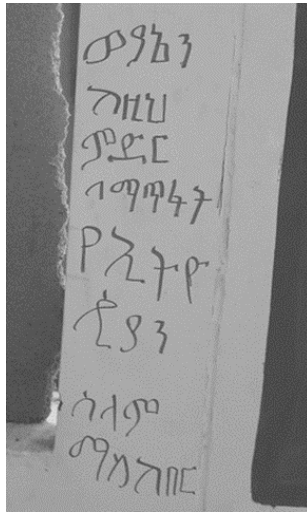 ወያኔን
ከዚህ
ምድር
ለማጥፋት
የኢትዮ
ጵያን
ሰላም
ማስከበር